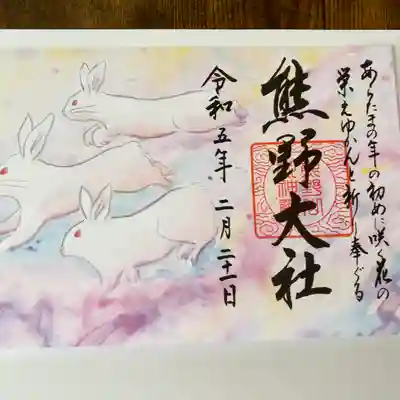 あらたまの年の初めに咲く花の
栄えゆかんと祈り奉ぐる
熊野大社
令和五年二月二十一日